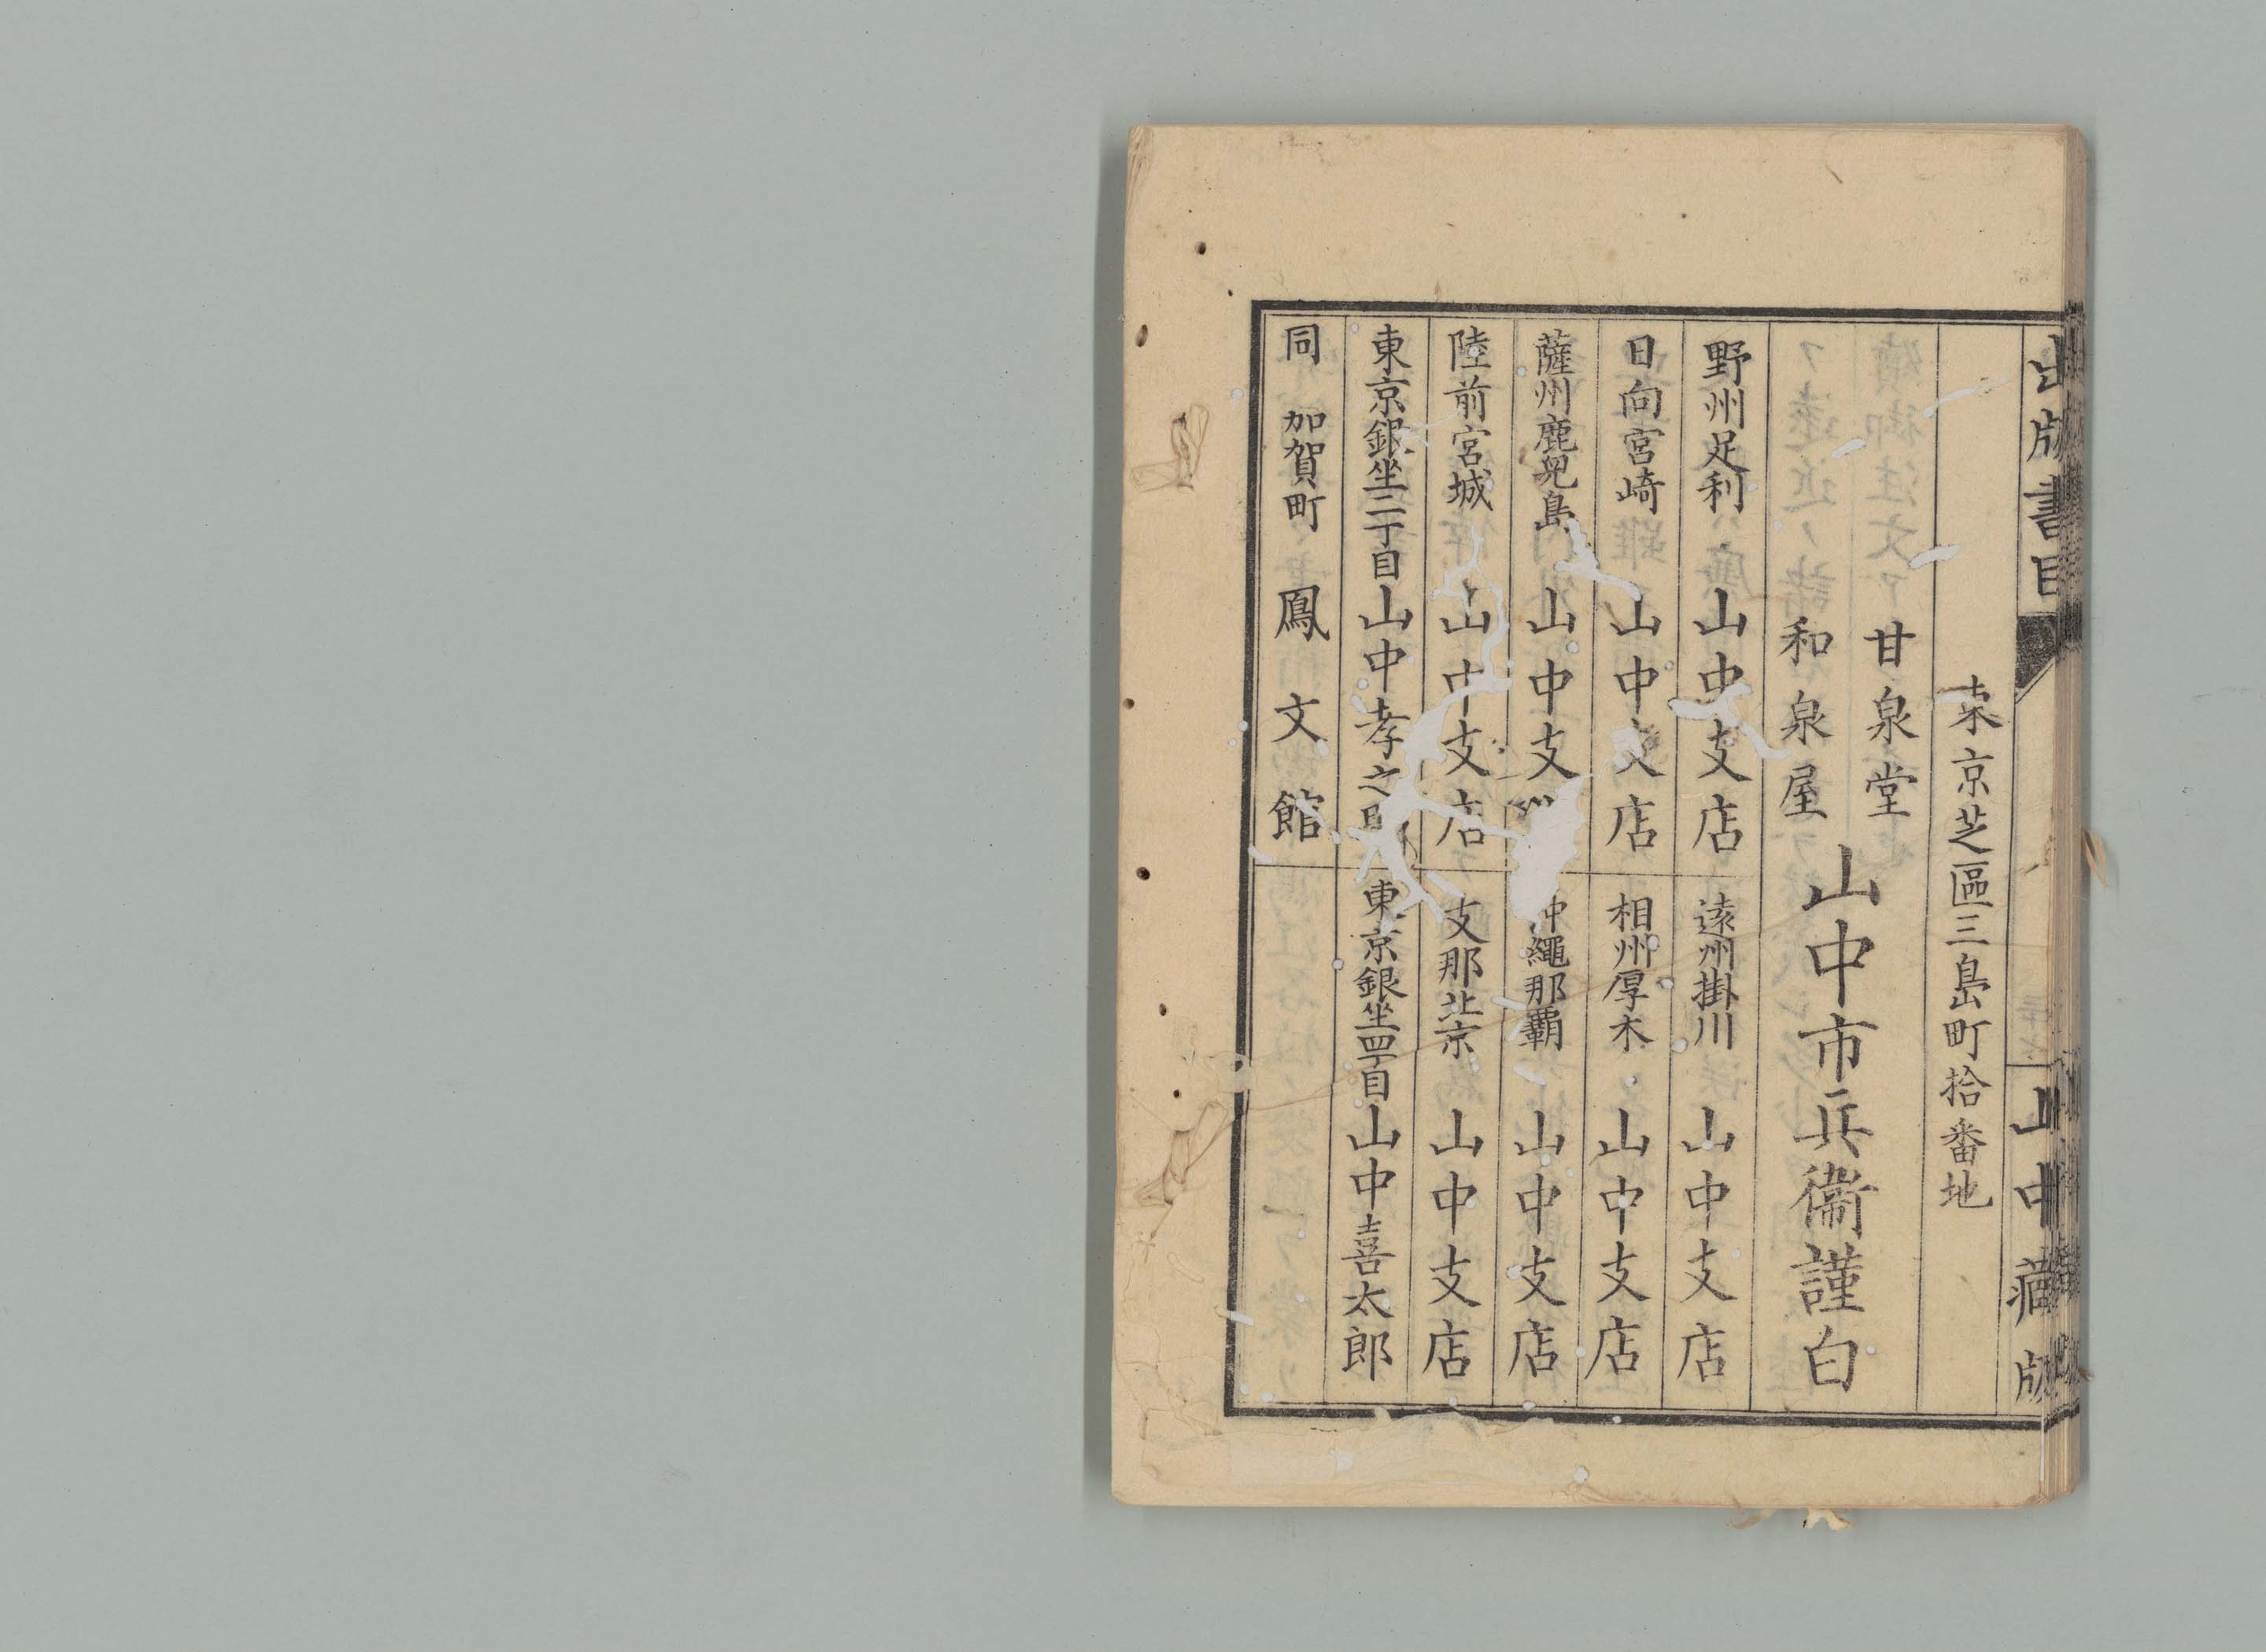 出版書目
山中藏版
東京芝區三島町拾番地
甘泉堂
和泉屋
山中市兵衞謹白
野州足利 山中支店
遠州掛川 山中支店
日向宮崎 山中支店
相州厚木 山中支店
薩州鹿兒島 山中支
沖繩那覇 山中支店
陸前宮城 山中支店
支那北京 山中支店
東京銀坐二丁目 山中孝之助
東京銀坐四丁目 山中喜太郎
同 加賀町 鳳文館